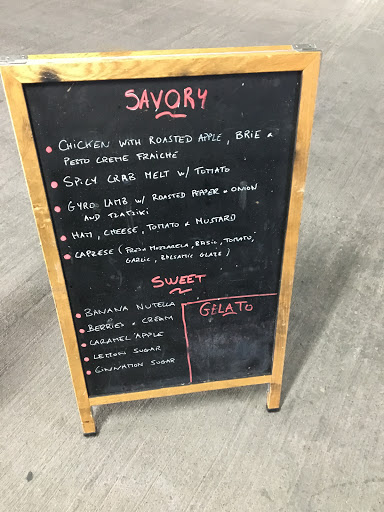 SAVORY
CHICKEN WITH ROASTED APPLE, BRIE &
PESTO CREME FRAICHE
SPICY CRAB MELT W/ TOMATO
GYRO LAMB W/ ROASTED PEPPER & ONION
AND TZATZIKI
HAM, CHEESE, TOMATO & MUSTARD
CAPRESE (FRESH MOZZARELA, BASIL, TOMATO,
GARLIC, BALSAMIC GLAZE)
SWEET
BANANA NUTELLA
BERRIES & CREAM
CARAMEL APPLE
LEMON SUGAR
CINNAMON SUGAR
GELATO